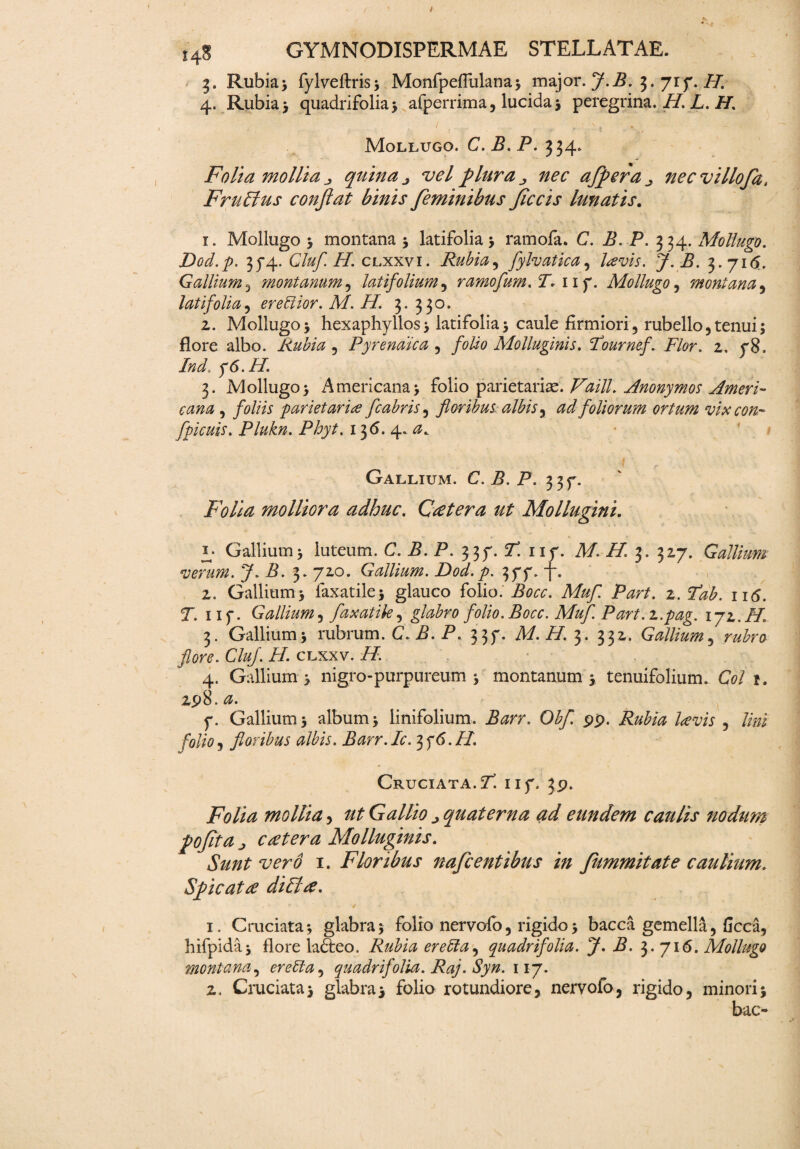 148 GYMNODISPERMAE STELLATAE.
3. Rubia; ſylveſtris; Monſpeſſulana; major. J.B. 3. 715. H.
4. Rubia; quadrifolia; aſperrima, lucida; peregrina. H. L. H.
MOLLUGO. C. B. P. 334.
Folia mollia, quina, vel plura, nec aſpera, nec villoſa.
Fructus conſtat binis ſeminibus ſiccis lunatis.
1. Mollugo; montana; latifolia; ramoſa. C. B. P. 334. Mollugo.
Dod. p. 354. Cluſ. H. CLXXVI. Rubia, ſylvatica, lævis. J. B. 3. 716.
Gallium, montanum, latifolium, ramoſum. T. 115. Mollugo, montana,
latifolia, erectior. M. H. 3. 330.
2. Mollugo; hexaphyllos; latifolia; caule firmiori, rubello, tenui;
flore albo. Rubia, Pyrenaïca, folio Molluginis. Tournef. Flor. 2. 58.
Ind. 56. H.
3. Mollugo; Americana; folio parietariæ. Vaill. Anonymos Ameri-
cana, foliis parietariæ ſcabris, floribus albis, ad foliorum ortum vix con-
ſpicuis. Plukn. Phyt. 136. 4. a.
GALLIUM. C. B. P. 335.
Folia molliora adhuc. Cætera ut Mollugini.
1. Gallium; luteum. C. B. P. 335. T. 115. M. H. 3. 327. Gallium
verum. J. B. 3. 720. Gallium. Dod. p. 355. †.
2. Gallium; ſaxatile; glauco folio. Bocc. Muſ. Part. 2. Tab. 116.
T. 115. Gallium, ſaxatile, glabro folio. Bocc. Muſ. Part. 2. pag. 172. H.
3. Gallium; rubrum. C. B. P. 335. M. H. 3. 332. Gallium, rubro
flore. Cluſ. H. CLXXV. H.
4. Gallium; nigro-purpureum; montanum; tenuifolium. Col 1.
298. a.
5. Gallium; album; linifolium. Barr. Obſ. 99. Rubia lævis, lini
folio, floribus albis. Barr. Ic. 356. H.
CRUCIATA. T. 115. 39.
Folia mollia, ut Gallio, quaterna ad eundem caulis nodum
poſita, cætera Molluginis.
Sunt verò 1. Floribus naſcentibus in ſummitate caulium.
Spicatæ dictæ.
1. Cruciata; glabra; folio nervoſo, rigido; baccâ gemellâ, ſiccâ,
hiſpidâ; flore lacteo. Rubia erecta, quadrifolia. J. B. 3. 716. Mollugo
montana, erecta, quadrifolia. Raj. Syn. 117.
2. Cruciata; glabra; folio rotundiore, nervoſo, rigido, minori;
bac-